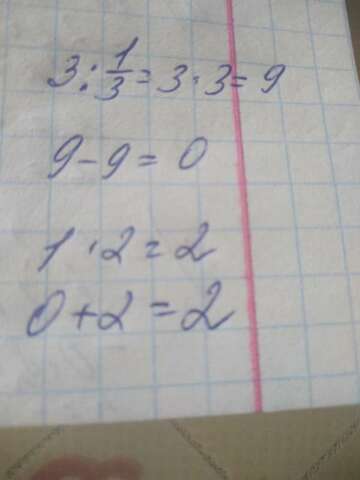 3 : 1/3 = 3 · 3 = 9
9 - 9 = 0
1 · 2 = 2
0 + 2 = 2